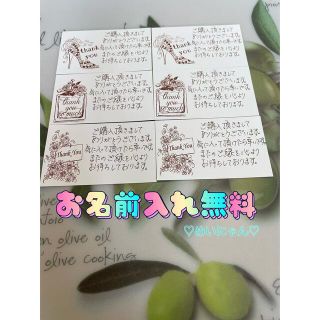 thank you
ご購入頂きまして
ありがとうございます。
気に入って頂けたら幸いです。
またのご縁を心より
お待ちしております。
thank you
ご購入頂きまして
ありがとうございます。
気に入って頂けたら幸いです。
またのご縁を心より
お待ちしております。
thank you so much
ご購入頂きまして
ありがとうございます。
気に入って頂けたら幸いです。
またのご縁を心より
お待ちしております。
thank you so much
ご購入頂きまして
ありがとうございます。
気に入って頂けたら幸いです。
またのご縁を心より
お待ちしております。
Thank You
ご購入頂きまして
ありがとうございます。
気に入って頂けたら幸いです。
またのご縁を心より
お待ちしております。
Thank You
ご購入頂きまして
ありがとうございます。
気に入って頂けたら幸いです。
またのご縁を心より
お待ちしております。
お名前入れ無料
olive oil
olive cooking